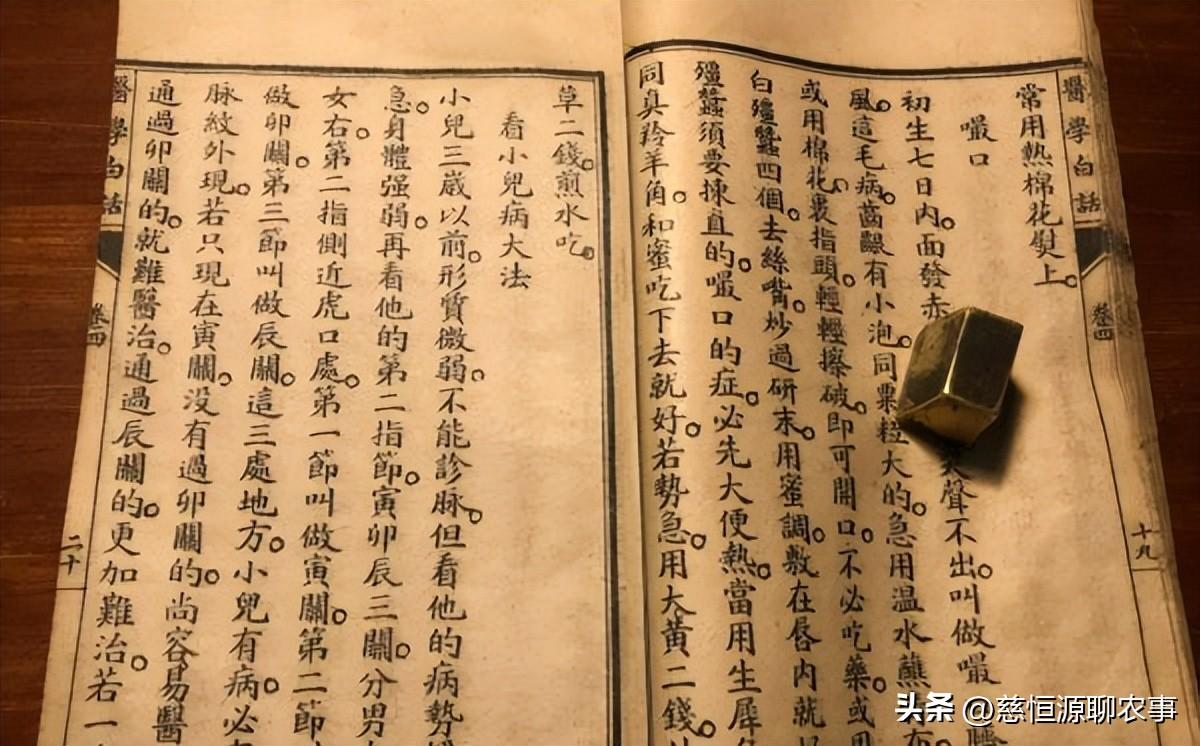 醫學白話 卷四 十九
常用熱棉花熨上。
嘬口
初生七日內。面發赤聲不出。叫做嘬
風。這毛病。齒齦有小泡。同粟粒大的。急用温水蘸布
或用棉花裹指頭。輕輕擦破。即可開口。不必吃藥。或用
白殭蠶四個。去絲嘴。炒過研末。用蜜調。敷在唇內就
殭蠶須要揀直的。嘬口的症。必先大便熱。當用生犀
同真羚羊角。和蜜吃下去就好。若勢急。用大黃二錢。
草二錢。煎水吃。
看小兒病大法
小兒三歲以前。形質微弱。不能診脉。但看他的病勢
急。身體强弱。再看他的第二指節。寅卯辰三關。分男
女右。第二指側近虎口處。第一節叫做寅關。第二節
做卯關。第三節叫做辰關。這三處地方。小兒有病。必
脉紋外現。若只現在寅關。沒有過卯關的。尚容易醫
通過卯關的。就難醫治。通過辰關的。更加難治。若一
醫學白話 卷四 二十
头条 @慈恒源聊农事